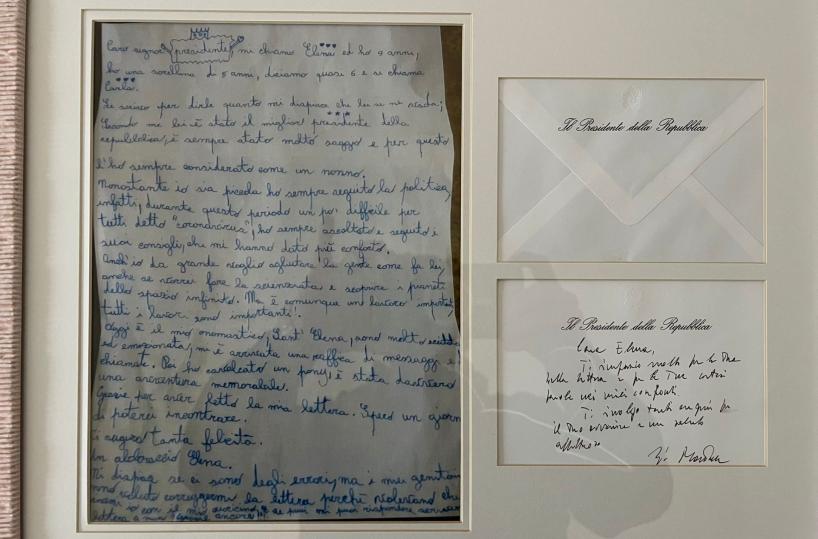 Caro signor presidente, mi chiamo Elena ed ho 9 anni,
ho una sorellina di 5 anni, diciamo quasi 6 e si chiama
Carla.
Le scrivo per dirle quanto mi dispiace che lei se ne vada;
Secondo me lei è stato il miglior presidente della
repubblica, è sempre stato molto saggio e per questo
l'ho sempre considerato come un nonno.
Nonostante io sia piccola ho sempre seguito la politica,
infatti, durante questo periodo un po' difficile per
tutti detto "coronavirus", ho sempre ascoltato e seguito i
suoi consigli, che mi hanno dato più conforto.
Anch'io da grande voglio aiutare la gente come fa lei,
anche se vorrei fare la scienziata e scoprire i pianeti
dello spazio infinito. Ma è comunque un lavoro
tutti i lavori sono importanti!.
Oggi è il mio onomastico, Sant' Elena, sono molto
ed emozionata, mi è arrivata una raffica di messaggi e
chiamate. Poi ho cavalcato un pony, è stata davvero
una avventura memorabile.
Grazie per aver letto la mia lettera. Spero un giorno
di poterci incontrare.
Ti auguro tanta felicità.
Un abbraccio Elena.
Mi dispiace se ci sono degli errori, ma i miei genitori
non voluto correggermi la lettera perchè volevano che
io con il mio se puoi mi puoi rispondere
lettera a me? Grazie ancora!!
Il Presidente della Repubblica
Il Presidente della Repubblica
Cara Elena,
Ti ringrazio molto per la tua
bella lettera e per le tue cortesi
parole nei miei confronti.
Ti invio tanti auguri per
il tuo avvenire e un saluto
affettuoso